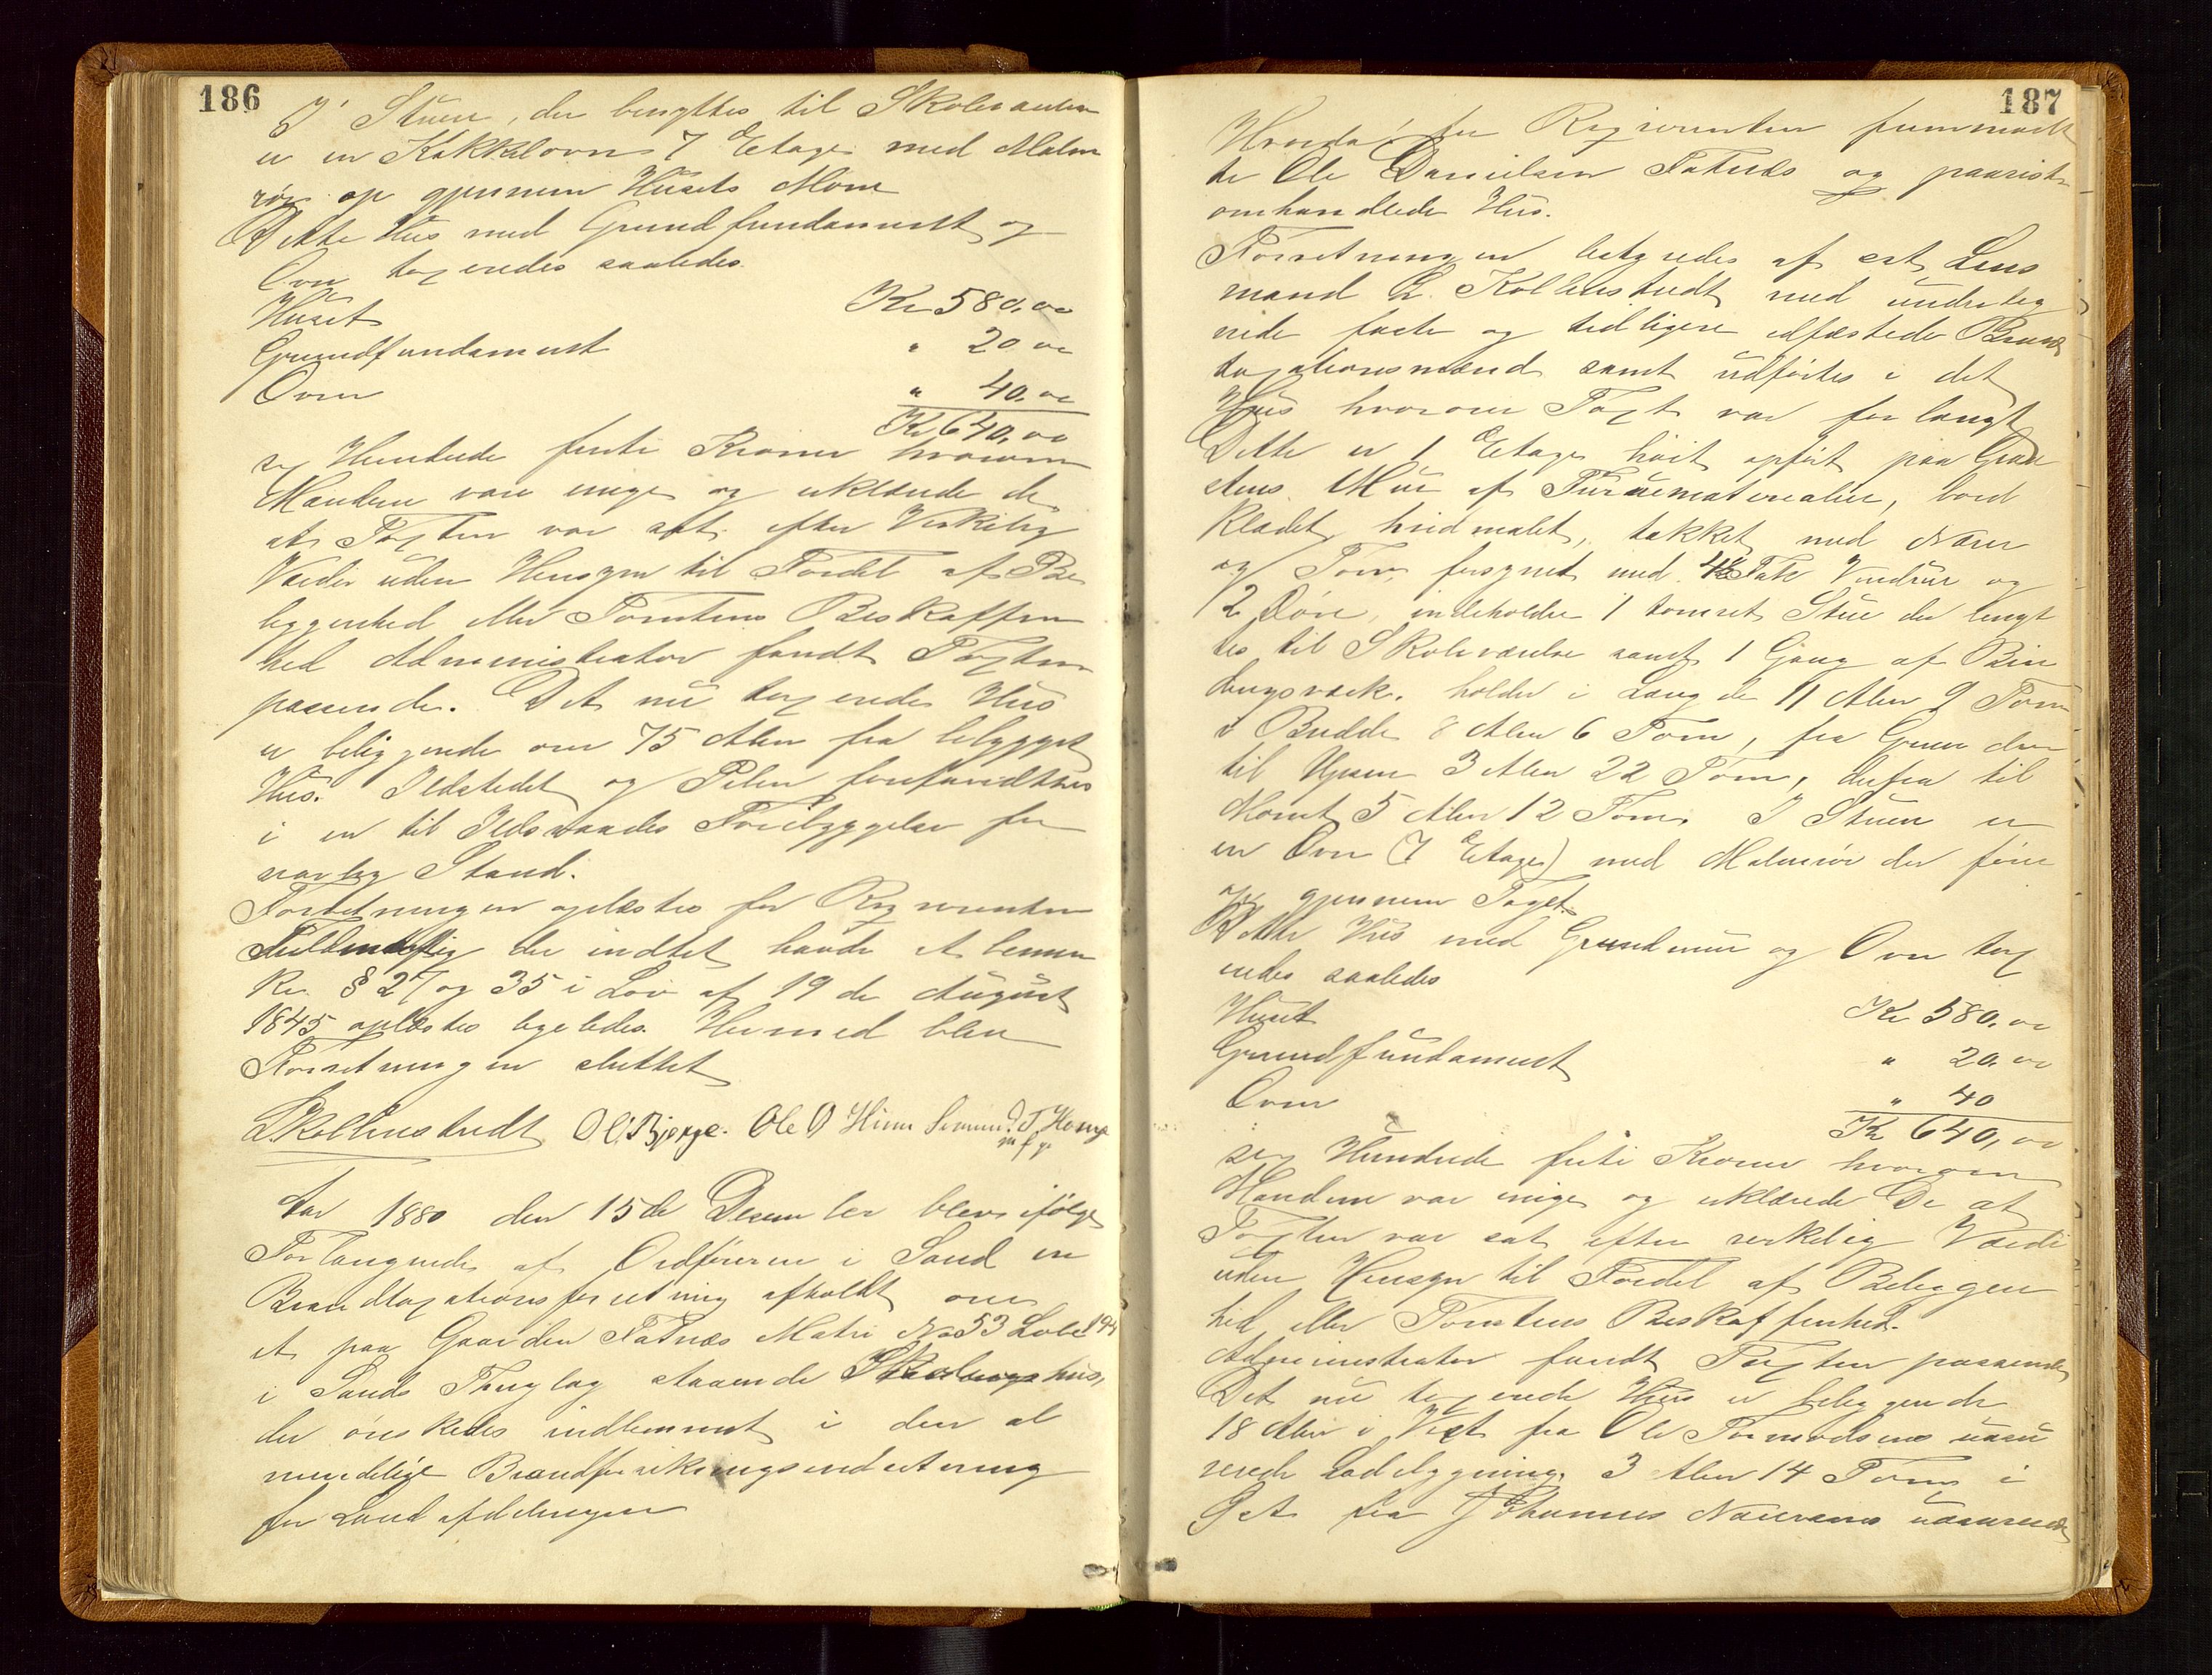 186
I Stuen, der benyttes til Skoleværelse
er en Kakkelovn 7 Etager med Malm
rør op gjennem Husets Møne
Dette Hus med Grundfundament og
Ovn taxeredes saaledes
Huset Kr 580,00
Grundfundament " 20 00
Ovn " 40,00
Kr 640,00
sex Hundrede førti Kroner hvorom
Mændene vare enige og erklærede de
at Taxten var sat efter Virkelig
Værdi uden Hensyn til Fordel af Be
liggenhed eller Tomtens Beskaffen
hed Administrator fandt Taxten
passende. Det nu taxerede Hus
er beliggende om 75 Alen fra bebygget
Hus. Ildstedet og Piben forefandtes
i en til Ildsvaades Forebyggelse for
svarlig Stand.
Forretningen oplæstes for Rekvirenten
Fuldmægtig der indtet havde at bemær
ke. § 27 og 35 i Lov af 19de August
1845 oplæstes ligeledes. Hermed blev
Forretningen sluttet
L Kolbenstvedt Ol. Bjerge. Ole O Hiim Simund T Homp
m f p
Aar 1880 den 15de Desember blev ifølge
Forlangende af Ordføreren i Sand en
Brandtaxationsforretning afholdt over
et paa Gaarden Fatnæs Matr No 53 Løbe 194
i Sands Thinglag staaende hus,
der ønskedes indlemmet i den al
mindelige Brandforsikringsindretning
for Landafdelingen
187
Hvorda for Rekvirenten fremmødt
te Ole Danielsen Fatnæs og paaviste
omhandlede Hus.
Forretningen betyredes af cst Lens
mand L. Kolbenstvedt med underteg
nede faste og tidligere edfæstede Brand
taxationsmænd samt udførtes i det
Hus hvorover Taxt var forlangt
Dette er 1 Etage høit opført paa Graa
stens Mur af Furuematerialier, bord
klædet, hvidmalet, takket med Næver
og Torv, forsynet med Fate Vinduer og
2 Døre, indeholder 1 tømret Stue der benyt
tes til Skoleværelse samt 1 Gang af Bin
dingsværk. holder i Længde 11 Alen 9 Tom
i Bredde 8 Alen 6 Tom, fra Grunden
til Gesem 3 Alen 22 Tom, derfra til
Mønet 5 Alen 12 Tom. I Stuen er
en Ovn (7 Etager) med Malmrør der føre
op gjennem Taget.
Dette Hus med Grundmur og Ovn tax
eredes saaledes
Huset Kr 580,00
Grundfundament " 20,00
Ovn " 40
Kr 640,00
sex Hundrede førti Kroner hvorom
Mændene var enige og erklærede De at
Taxten var sat efter verkelig Værdi
uden Hensyn til Fordel af Beliggen
hed eller Tomtens Beskaffenhed.
Administrator fandt Taxten passende
Det nu taxerede Hus er beliggende
18 Alen i Vest fra Ole Tormodsens uasu
rerede Ladebygning, 3 Alen 14 Tom i
Øst fra Johannes uasurerede